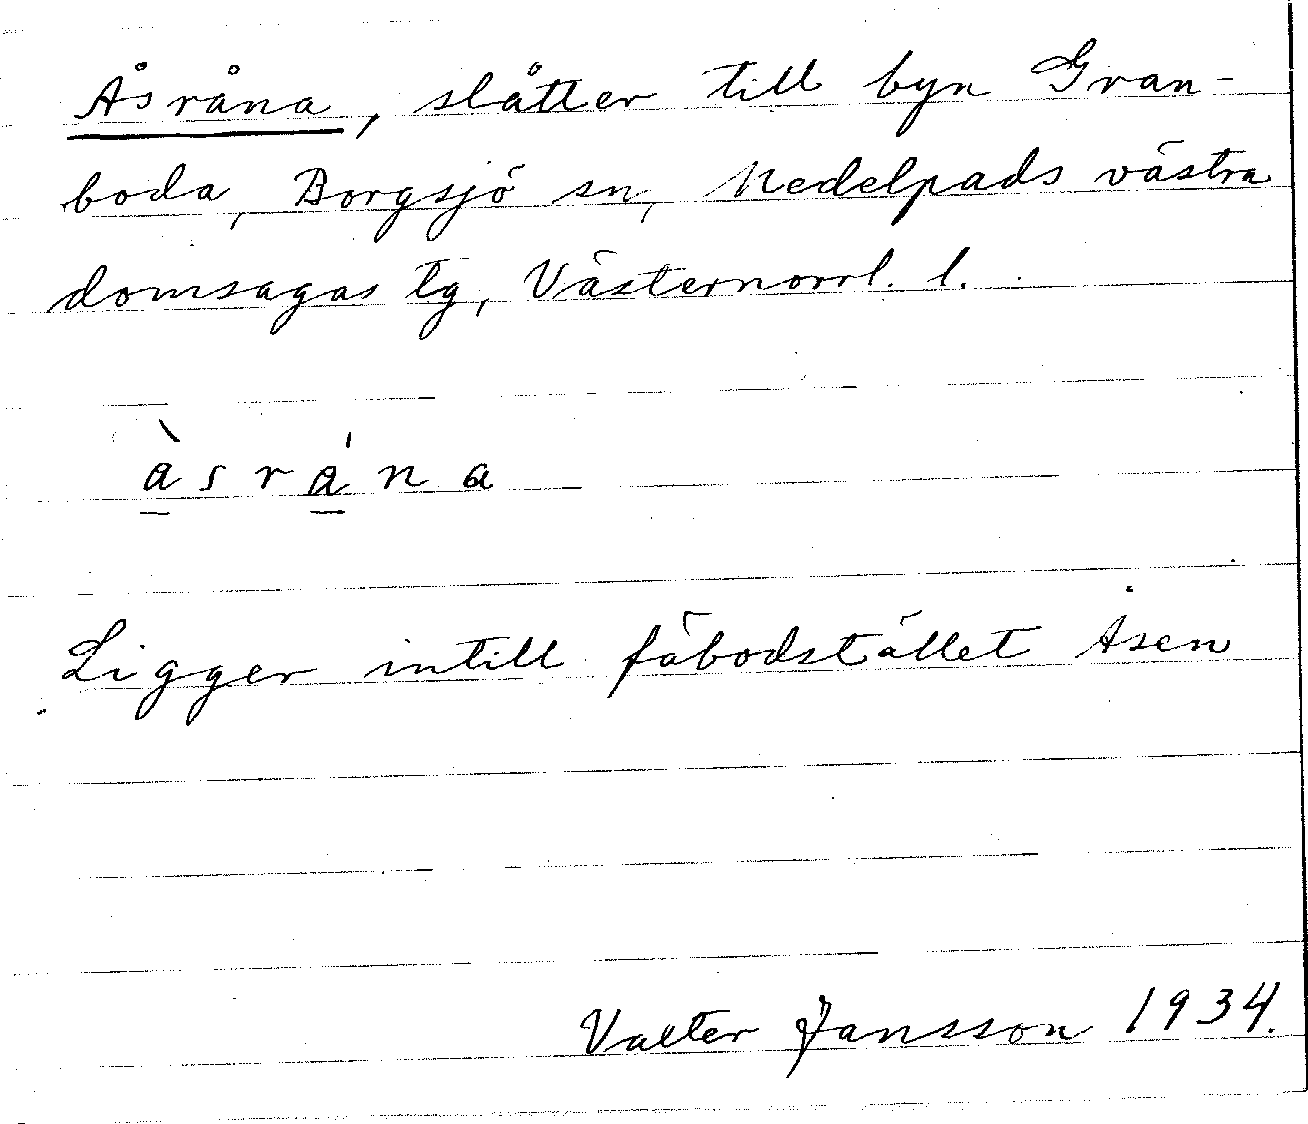 Åsråna, slåtter till byn Gran-
boda, Borgsjö sn, Medelpads västra
domsagas tg, Västernorrl. l.
à̱srá̱na
Ligger intill fäbodstället Åsen
Valter Jansson 1934.